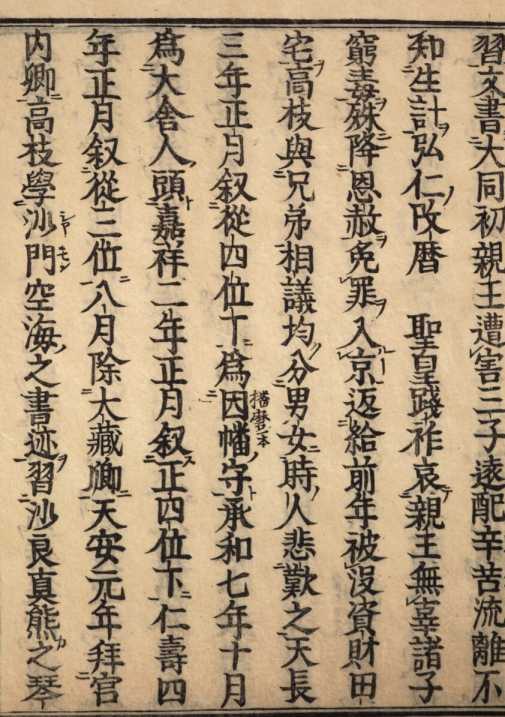 習文書大同初親王遭害三子遠配辛苦流離不
知生計弘仁改暦　聖皇踐祚哀親王無辜諸子
窮毒殊降恩赦免罪入京返給前年被没資財田
宅高枝與兄弟相議均分男女時人悲歎之天長
三年正月叙從四位下爲因幡守承和七年十月
播磨イ本
爲大舍人頭嘉祥二年正月叙正四位下仁壽四
年正月叙從三位八月除大藏卿天安元年拜宮
内卿高枝學沙門空海之書迹習沙良真熊之琴
シヤモン